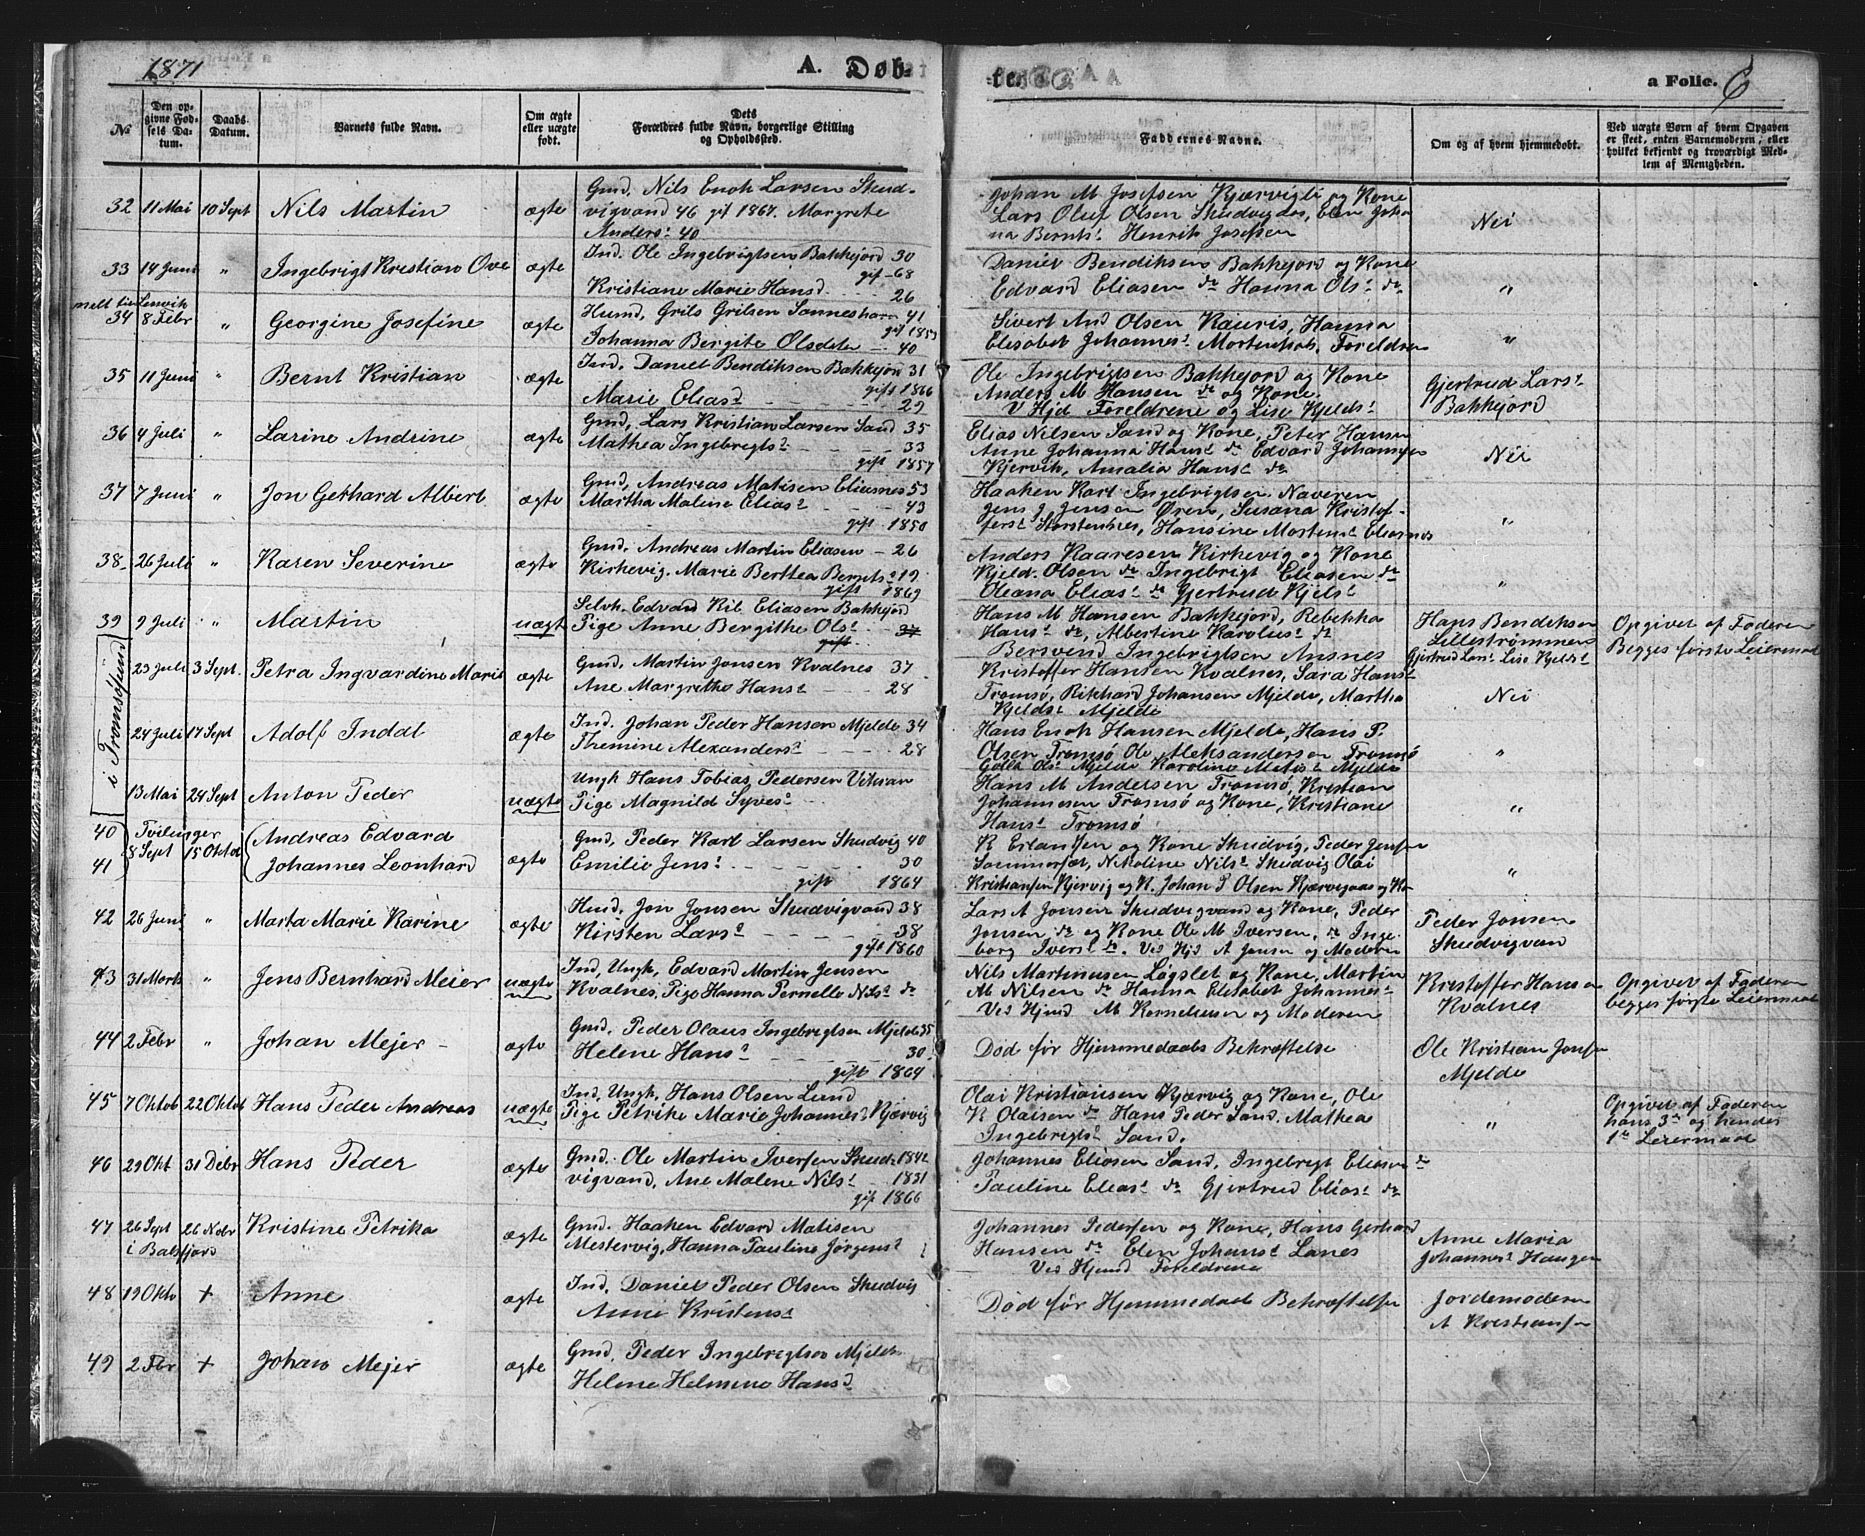 1871
A. Døb-
te.
a Folio. 6
No
Den op-
givne Fød-
sels Da-
tum.
Daabs-
Datum.
Varnets fulde Navn.
Om ægte
eller uægte
født.
Dets
Forældres fulde Navn, borgerlige Stilling
og Opholdssted.
Faddernes Navne.
Om og af hvem hjemmedøbt.
Ved uægte Børn af hvem Opgaven
er skeet, enten Barnemoderen, eller
hvilket bekjendt og troværdigt Med-
lem af Menigheden.
32 11 Mai 10 Sept Nils Martin ægte
Gmd. Nils Enok Larsen Skud-
vigvand 46 gif 1867. Margrete
Anders. 40
Johan M Josefsen Kjærvigli og Kone
Lars Oluf Olsen Skudvigdas, Elen Joha
na Bernts. Henrik Josefsen
Nei
33 14 Juni " Ingebrigt Kristian Ove ægte
Ind. Ole Ingebrigtsen Bakkejord 30
gif 68
Kristiane Marie Hansd. - 26
Daniel Bendiksen Bakkejord og Kone
Edvard Eliasen do Hanna Ols. do
"
melt til Lenvik
34 8 Febr " Georgine Josefine ægte
Husmd, Grils Grilsen Sonneshavn 41
gif 1859
Johanna Bergite Olsdtr - 40
Sivert And Olsen Rauris, Hanna
Elesabet Johannes. Mortenhals. Foreldren
"
35 11 Juni " Bernt Kristian ægte
Ind. Daniel Bendiksen Bakkejord 31
gift 1866
Marie Elias. - 29
Ole Ingebrigtsen Bakkejord og Kone
Anders M Hansen do og Kone.
V Hjd Foreldrene og Lise Kjelds.
Gjertrud Lars.
Bakkejord
36 4 Juli " Larine Andrine ægte
Gmd, Lars Kristian Larsen Sand 35
Mathea Ingebrigts. - 33
gift 1857
Elias Nilsen Sand og Kone, Peter Hansen
Anne Johanna Hans. do Edvard Johansen
Kjervik, Amalia Hans. do
Nei
37 7 Juni " Jon Gerhard Albert ægte
Gmd, Andreas Matisen Eliasnes 53
Martha Malene Elias. - 43
gift 1850
Haaken Karl Ingebrigtsen Naveren
Jens J Jensen Øren, Susana Kristof-
fers. Storstenbres, Hansine Mortens. Eliasnes
"
38 26 Juli " Karen Severine ægte
Gmd. Andreas Martin Eliasen - 26
Kirkevig. Marie Berthea Bernts. 19
gift 1869
Anders Kaaresen Kirkevig og Kone
Kjeld. Olsen do Ingebrigt Eliasen do
Oleana Elias. do Gjertrud Kjels.
"
39 9 Juli " Martin uægte
Selvh. Edvard Kil Eliasen Bakkejord
Pige Anne Bergithe Ols. 37
gift
Hans M Hansen Bakkejord, Rebekka
Hans. do, Albertine Karolus. do
Bersvend Ingebrigtsen Ansnes
Hans Bendiksen
Lillestrømmen
Gjertrud Lars. Lise Kjelds.
Opgivet af Faderen
Begges første Leiermaal
i Tromsøsund
23 Juli 3 Sept. Petra Ingvardine Marie ægte
Gmd. Martin Jonsen Kvalnes 37
Ane Margrethe Hans. - 28
Kristoffer Hansen Kvalnes, Sara Hans.
Tromsø, Rikhard Johansen Mjelde, Martha
Kjelds. Mjelde
Nei
24 Juli 17 Sept Adolf Indal ægte
Ind. Johan Peder Hansen Mjelde 34
Themine Alexanders. - 28
Hans Enok Hansen Mjelde, Hans P.
Olsen Tromsø Ole Aleksandersen Tromsø
Golla Ols. Mjelde Karoline Matis. Mjelde
"
13 Mai 24 Sept Anton Peder uægte
Ungk Hans Tobias Pedersen Vikran
Pige Magnild Syves.
Hans M Andersen Tromsø, Kristian
Johannesen Tromsø og Kone, Kristiane
Hans. Tromsø
"
40 Tvilinger Andreas Edvard
41 8 Sept 15 Oktob Johannes Leonhard ægte
Gmd, Peder Karl Larsen Skudvig 40
Emilie Jens. - 30
gift 1864
K Erlansen og Kone Skudvig, Peder Jensen
Sommersæt, Nikoline Nils. Skudvig Olai
Kristiansen Kjervig og K. Johan P Olsen Kjærvigaas og Ko-
"
42 26 Juni " Marta Marie Karine ægte
Husd. Jon Jonsen Skudvigvand 38
Kirsten Lars. - 38
gift 1860
Lars A Jonsen Skudvigvand og Kone, Peder
Jonsen, do og Kone Ole M Iversen, do Inge
borg Ivers. do. Ved Hjd A Jensen og Moderen
Peder Jonsen
Skudvigvan
43 31 Marts " Jens Bernhard Meier uægte
Ind, Ungk, Edvard Martin Jensen
Kvalnes, Pige Hanna Pernelle Nils. do
Nils Martinusen Løgslet og Kone, Martin
Ab Nilsen do Hanna Elesabet Johannes.
Ved Hjmd M Kornelsen og Moderen
Kristoffer Hansen
Kvalnes
Opgivet af Faderen
begges første Leiermaal
44 2 Febr " Johan Mejer - ægte
Gmd. Peder Olaus Ingebrigtsen Mjelde 35
Helene Hans. - 30.
gift 1864
Død før Hjemmedaabs Bekræftelse
Ole Kristian Jonsen
Mjelde
45 7 Oktob 22 Oktob Hans Peder Andreas uægte
Ind, Ungk, Hans Olsen Lund
Pige Petrike Marie Johannes. Kjærvig
Olai Kristiansen Kjærvig og Kone, Ole
K Olaisen do Hans Peder Sand. Mathea
Ingebrigts. Sand.
"
Opgivet af Faderen
hans 3de og hendes
1ste Leiermaal
46 29 Okt 31 Debr Hans Peder ægte
Gmd. Ole Martin Iversen Skud- 1842
vigvand, Ane Malene Nils. - 1831
gif 1866
Johannes Eliasen Sand. Ingebrigt Eliasen do
Pauline Elias. do Gjertrud Elias. do
47 26 Sept 26 Nobr Kristine Petrika ægte
i Balsfjord
Gmd. Haaken Edvard Matisen
Mestervig, Hanna Pauline Jørgens.
Johannes Pedersen og Kone, Hans Gerhard
Hansen do Elen Johans. Lanes
Ved Hjmd Foreldrene
Anne Maria
Johannes. Haugen
48 19 Okto + Anne ægte
Ind. Daniel Peder Olsen Skudvig
Anne Kristens.
Død før Hjemmedaab Bekræftelse
Jordemoderen
A Kristiansen
49 2 Fbr + Johan Mejer ægte
Gmd. Peder Ingebregtsen Mjelde
Helene Helmine Hansd.